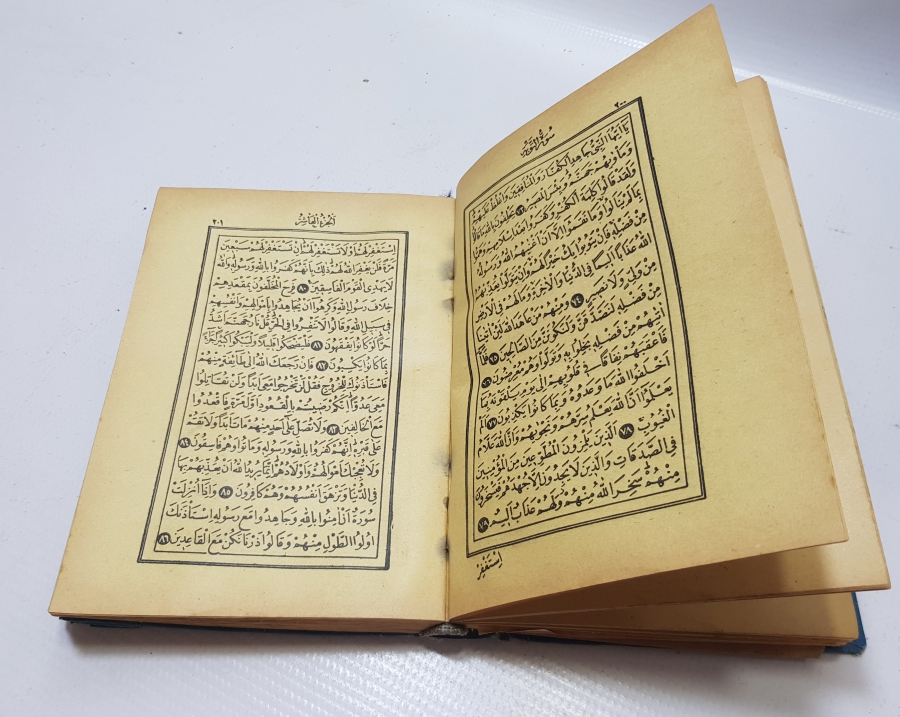 ٢٠٠
سُورَةُ التَّوْبَةِ
يَا اَيُّهَا النَّبِىُّ جَاهِدِ الْكُفَّارَ وَالْمُنَافِقِينَ وَاغْلُظْ عَلَيْهِمْ
وَمَأْوٰيهُمْ جَهَنَّمُ وَبِئْسَ الْمَصِيرُ ٧٣ يَحْلِفُونَ بِاللّٰهِ مَا قَالُوا
وَلَقَدْ قَالُوا كَلِمَةَ الْكُفْرِ وَكَفَرُوا بَعْدَ اِسْلَامِهِمْ وَهَمُّوا
بِمَا لَمْ يَنَالُوا وَمَا نَقَمُوا اِلَّا اَنْ اَغْنٰيهُمُ اللّٰهُ وَرَسُولُهُ
مِنْ فَضْلِهِ فَاِنْ يَتُوبُوا يَكُ خَيْرًا لَهُمْ وَاِنْ يَتَوَلَّوْا يُعَذِّبْهُمُ
اللّٰهُ عَذَابًا اَلِيمًا فِى الدُّنْيَا وَالْاٰخِرَةِ وَمَا لَهُمْ فِى الْاَرْضِ
مِنْ وَلِىٍّ وَلَا نَصِيرٍ ٧٤ وَمِنْهُمْ مَنْ عَاهَدَ اللّٰهَ لَئِنْ اٰتٰينَا
مِنْ فَضْلِهِ لَنَصَّدَّقَنَّ وَلَنَكُونَنَّ مِنَ الصَّالِحِينَ ٧٥ فَلَمَّا
اٰتٰيهُمْ مِنْ فَضْلِهِ بَخِلُوا بِهِ وَتَوَلَّوْا وَهُمْ مُعْرِضُونَ ٧٦
فَاَعْقَبَهُمْ نِفَاقًا فِى قُلُوبِهِمْ اِلٰى يَوْمِ يَلْقَوْنَهُ بِمَا
اَخْلَفُوا اللّٰهَ مَا وَعَدُوهُ وَبِمَا كَانُوا يَكْذِبُونَ ٧٧ اَلَمْ
يَعْلَمُوا اَنَّ اللّٰهَ يَعْلَمُ سِرَّهُمْ وَنَجْوٰيهُمْ وَاَنَّ اللّٰهَ عَلَّامُ
الْغُيُوبِ ٧٨ اَلَّذِينَ يَلْمِزُونَ الْمُطَّوِّعِينَ مِنَ الْمُؤْمِنِينَ
فِى الصَّدَقَاتِ وَالَّذِينَ لَا يَجِدُونَ اِلَّا جُهْدَهُمْ فَيَسْخَرُونَ
مِنْهُمْ سَخِرَ اللّٰهُ مِنْهُمْ وَلَهُمْ عَذَابٌ اَلِيمٌ ٧٩
اِسْتَغْفِرْ
اَلْجُزْءُ الْعَاشِرُ
٢٠١
اِسْتَغْفِرْ لَهُمْ اَوْ لَا تَسْتَغْفِرْ لَهُمْ اِنْ تَسْتَغْفِرْ لَهُمْ سَبْعِينَ
مَرَّةً فَلَنْ يَغْفِرَ اللّٰهُ لَهُمْ ذٰلِكَ بِاَنَّهُمْ كَفَرُوا بِاللّٰهِ وَرَسُولِهِ وَاللّٰهُ
لَا يَهْدِى الْقَوْمَ الْفَاسِقِينَ ٨٠ فَرِحَ الْمُخَلَّفُونَ بِمَقْعَدِهِمْ
خِلَافَ رَسُولِ اللّٰهِ وَكَرِهُوا اَنْ يُجَاهِدُوا بِاَمْوَالِهِمْ وَاَنْفُسِهِمْ
فِى سَبِيلِ اللّٰهِ وَقَالُوا لَا تَنْفِرُوا فِى الْحَرِّ قُلْ نَارُ جَهَنَّمَ اَشَدُّ
حَرًّا لَوْ كَانُوا يَفْقَهُونَ ٨١ فَلْيَضْحَكُوا قَلِيلًا وَلْيَبْكُوا كَثِيرًا جَزَاءً
بِمَا كَانُوا يَكْسِبُونَ ٨٢ فَاِنْ رَجَعَكَ اللّٰهُ اِلٰى طَائِفَةٍ مِنْهُمْ
فَاسْتَأْذَنُوكَ لِلْخُرُوجِ فَقُلْ لَنْ تَخْرُجُوا مَعِىَ اَبَدًا وَلَنْ تُقَاتِلُوا
مَعِىَ عَدُوًّا اِنَّكُمْ رَضِيتُمْ بِالْقُعُودِ اَوَّلَ مَرَّةٍ فَاقْعُدُوا
مَعَ الْخَالِفِينَ ٨٣ وَلَا تُصَلِّ عَلٰى اَحَدٍ مِنْهُمْ مَاتَ اَبَدًا وَلَا تَقُمْ
عَلٰى قَبْرِهِ اِنَّهُمْ كَفَرُوا بِاللّٰهِ وَرَسُولِهِ وَمَاتُوا وَهُمْ فَاسِقُونَ ٨٤
وَلَا تُعْجِبْكَ اَمْوَالُهُمْ وَاَوْلَادُهُمْ اِنَّمَا يُرِيدُ اللّٰهُ اَنْ يُعَذِّبَهُمْ بِهَا
فِى الدُّنْيَا وَتَزْهَقَ اَنْفُسُهُمْ وَهُمْ كَافِرُونَ ٨٥ وَاِذَا اُنْزِلَتْ
سُورَةٌ اَنْ اٰمِنُوا بِاللّٰهِ وَجَاهِدُوا مَعَ رَسُولِهِ اسْتَأْذَنَكَ
اُولُوا الطَّوْلِ مِنْهُمْ وَقَالُوا ذَرْنَا نَكُنْ مَعَ الْقَاعِدِينَ ٨٦